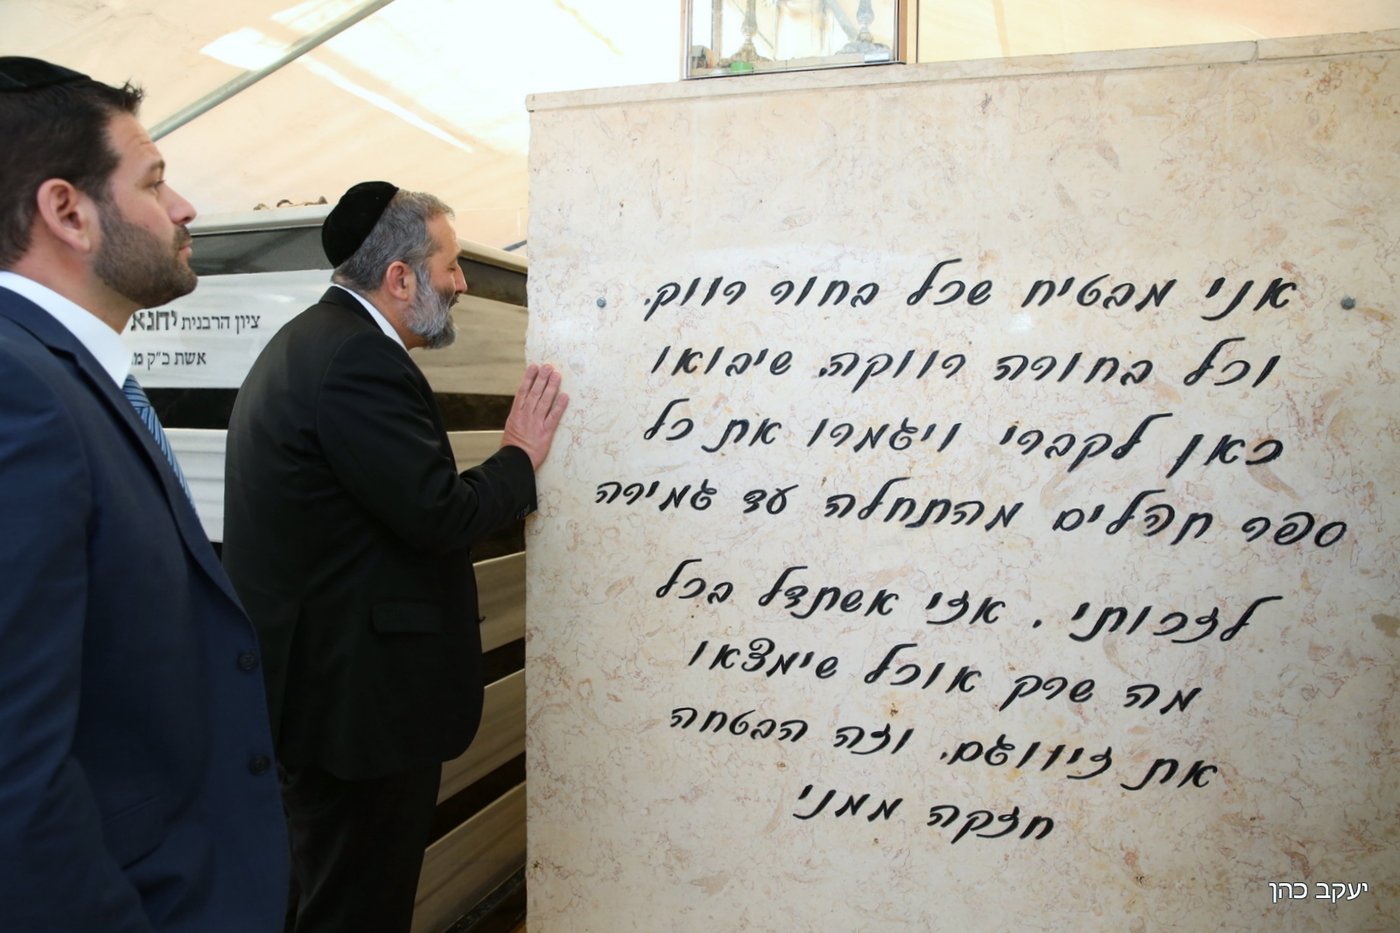 אני מבטיח שכל בחור רווק,
וכל בחורה רווקה, שיבואו
כאן לקברי ויגמרו את כל
ספר תהלים מהתחלה עד גמירה
לזכותי. אזי אשתדל בכל
מה שרק אוכל שימצאו
את זיווגם, וזה הבטחה
חזקה ממני
ציון הרבנית יחנא
אשת כ״ק
יעקב כהן